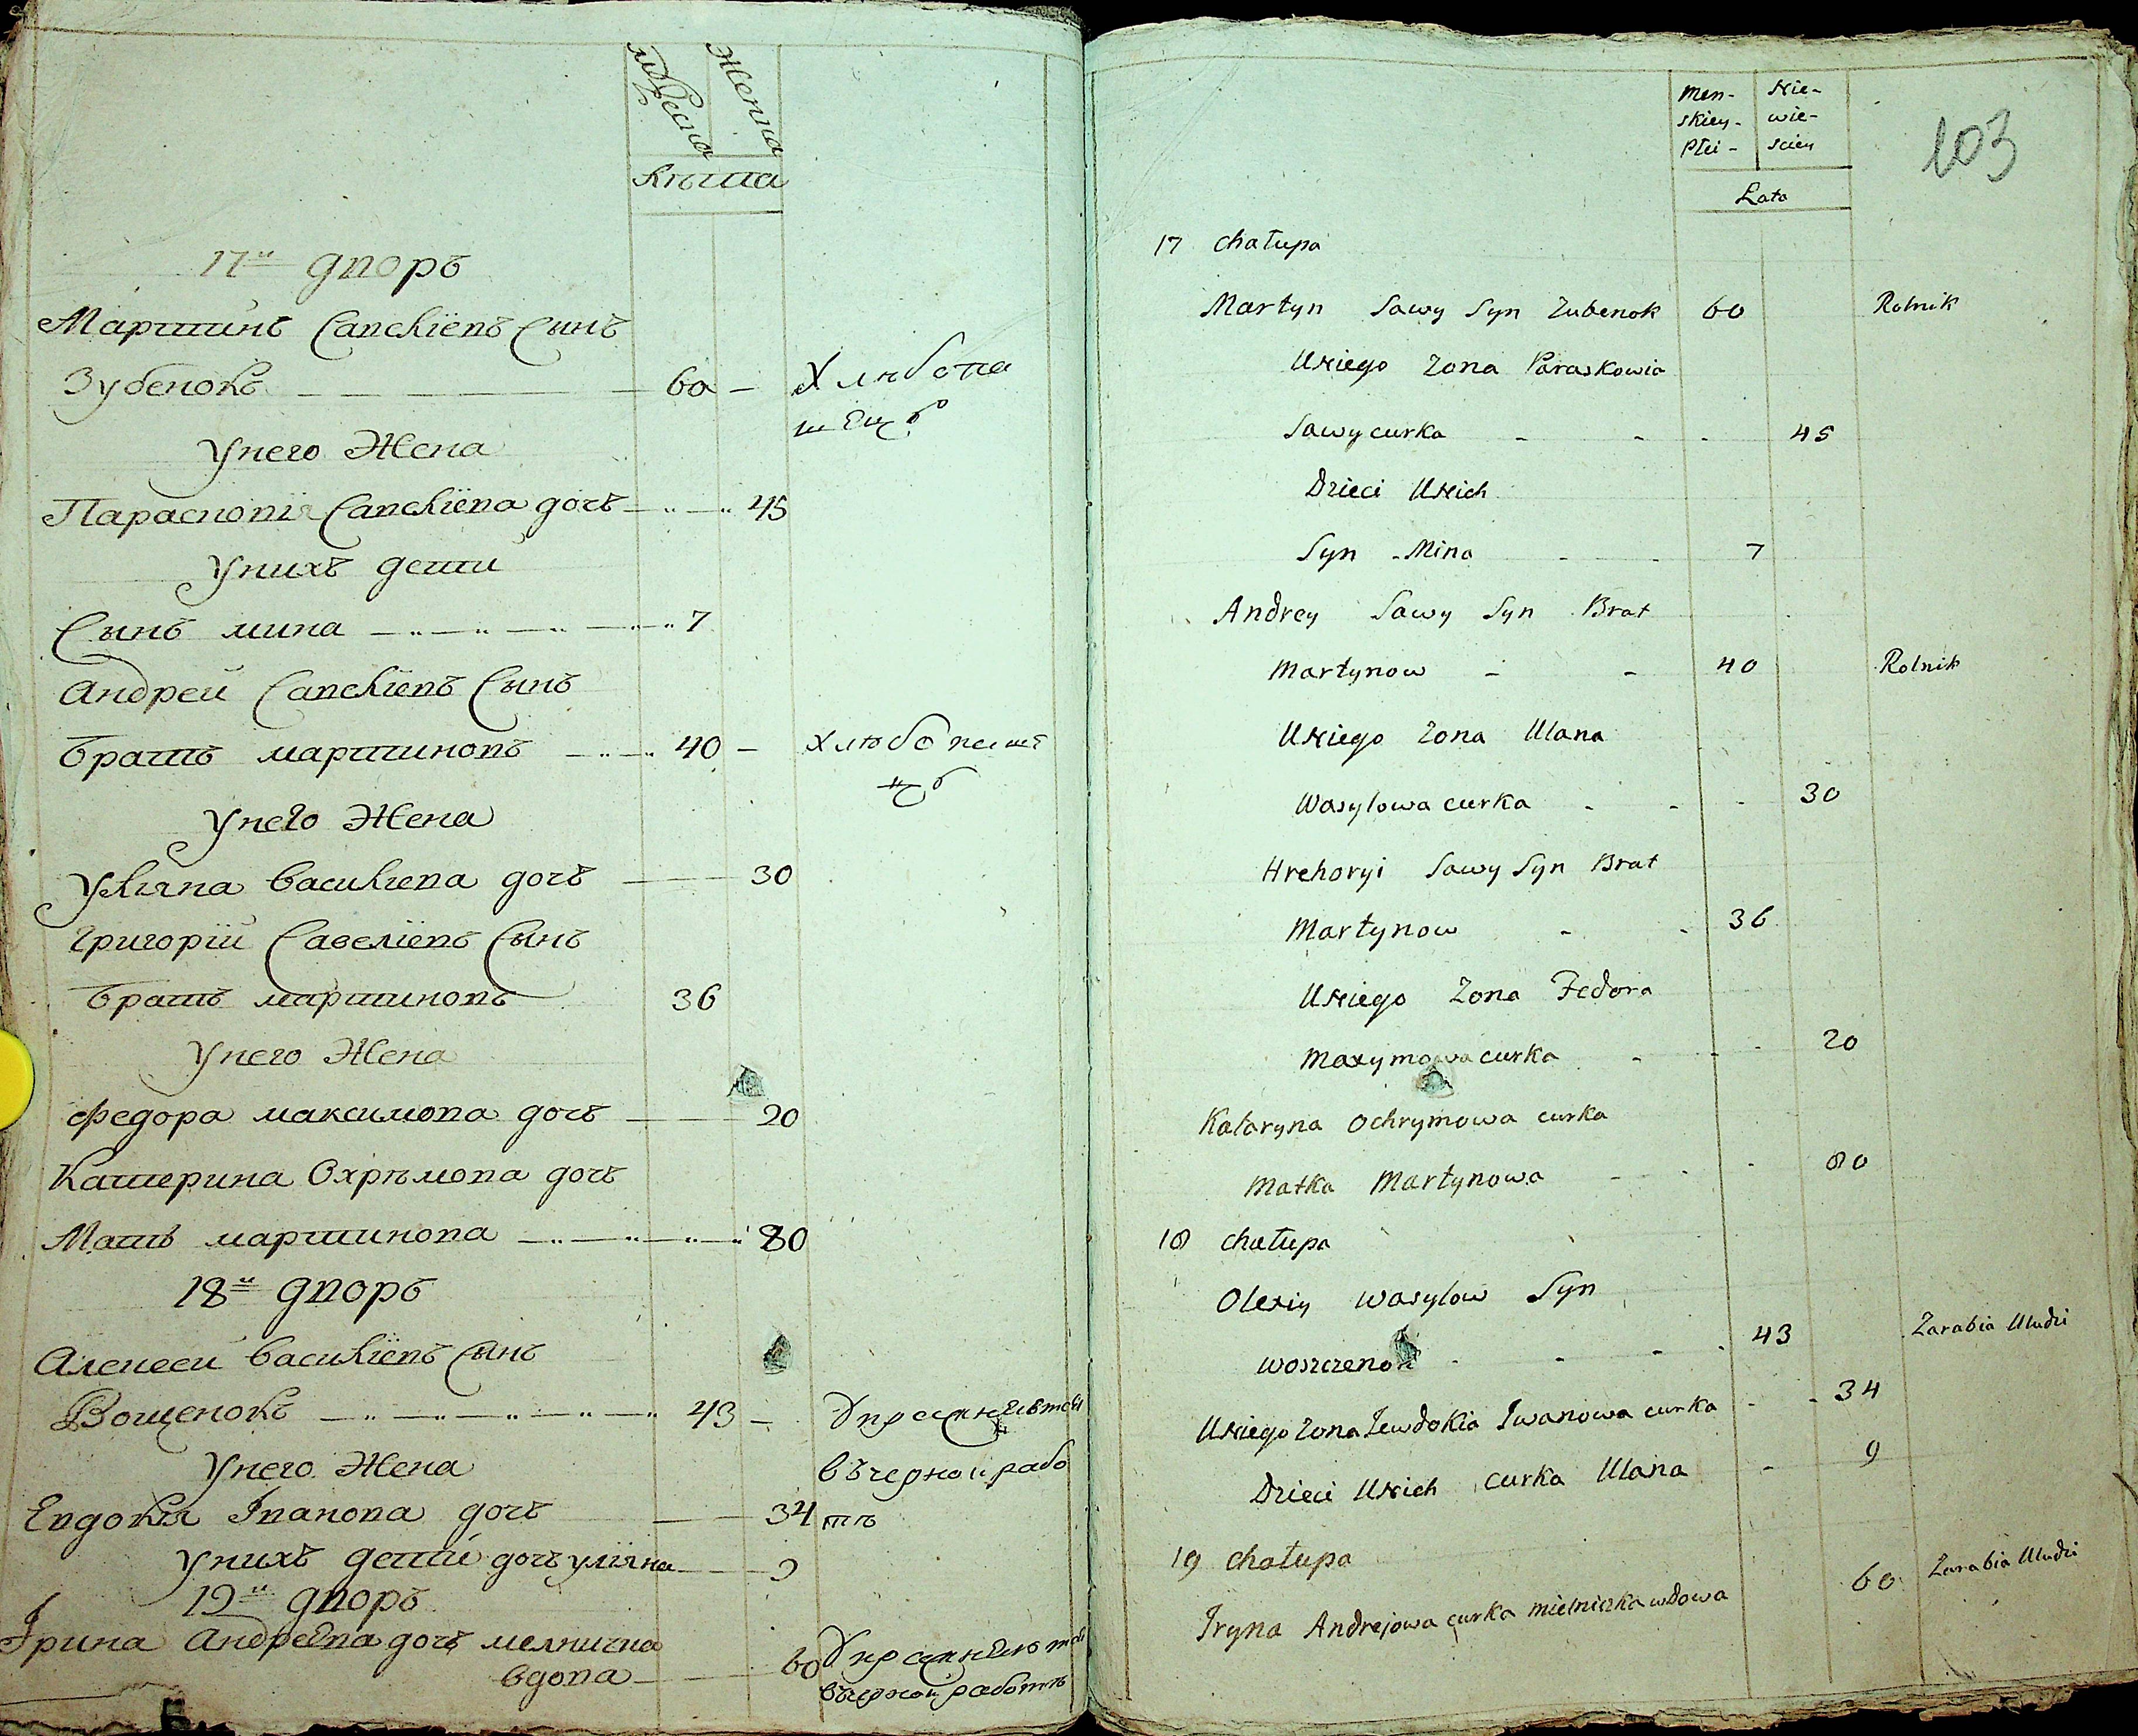 Мужеска
Женска
Лѣта
17й дворъ
Мартинъ Савеліевъ Сынъ
Зубенокъ 60 Хлѣбопа
шецъ
Унего Жена
Парасковія Савеліева дочь 45
Унихъ дети
Сынъ мина 7
Андрей Савеліевъ Сынъ
братъ мартиновъ 40 хлѣбопаше
цъ
Унего Жена
Уліяна василіева дочь 30
Григорій Савеліевъ Сынъ
братъ мартиновъ 36
Унего Жена
Федора максимова дочь 20
Катерина Охрѣмова дочь
Мать мартинова 80
18й дворъ
Алексеи василіевъ Сынъ
Вощенокъ 43
Унего Жена вчерной рабо
Евдокія Іванова дочь 34 тѣ
Унихъ дети дочь уліяна 9
19й дворъ
Ірина Андреева дочь мелничка
вдова 60
вчерной работѣ
103
Men- Nie-
skiey- wie-
Płci- sciey
Lata
17 Chałupa
Martyn Sawy Syn Zubenok 60 Rolnik
Uniego Zona Paraskowia
Sawy curka 45
Dzieci Unich
Syn Mina 7
Andrey Sawy Syn Brat
Martynow 40 Rolnik
Uniego Zona Ulana
Wasylowa curka 30
Hrehoryi Sawy Syn Brat
Martynow 36
Uniego Zona Fedora
Maxymowa curka 20
Kataryna Ochrymowa curka
Matka Martynowa 80
18 Chałupa
Olexiy Wasylow Syn
Woszczenok 43 Zarabia Uludzi
Uniego Zona Jewdokia Iwanowa curka 34
Dzieci Unich curka Ulana 9
19 Chałupa
Iryna Andrejowa curka mielniczka wdowa 60 Zarabia Uludzi